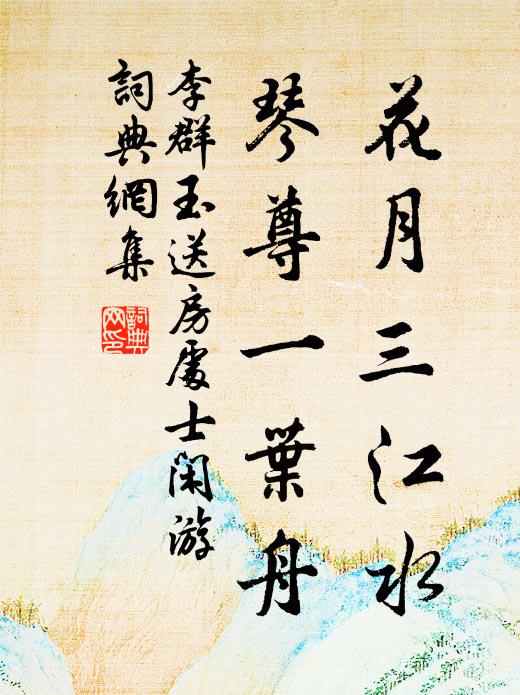 花月三江水
琴尊一葉舟
李群玉送房處士閑游
詞典網集
詞典網印